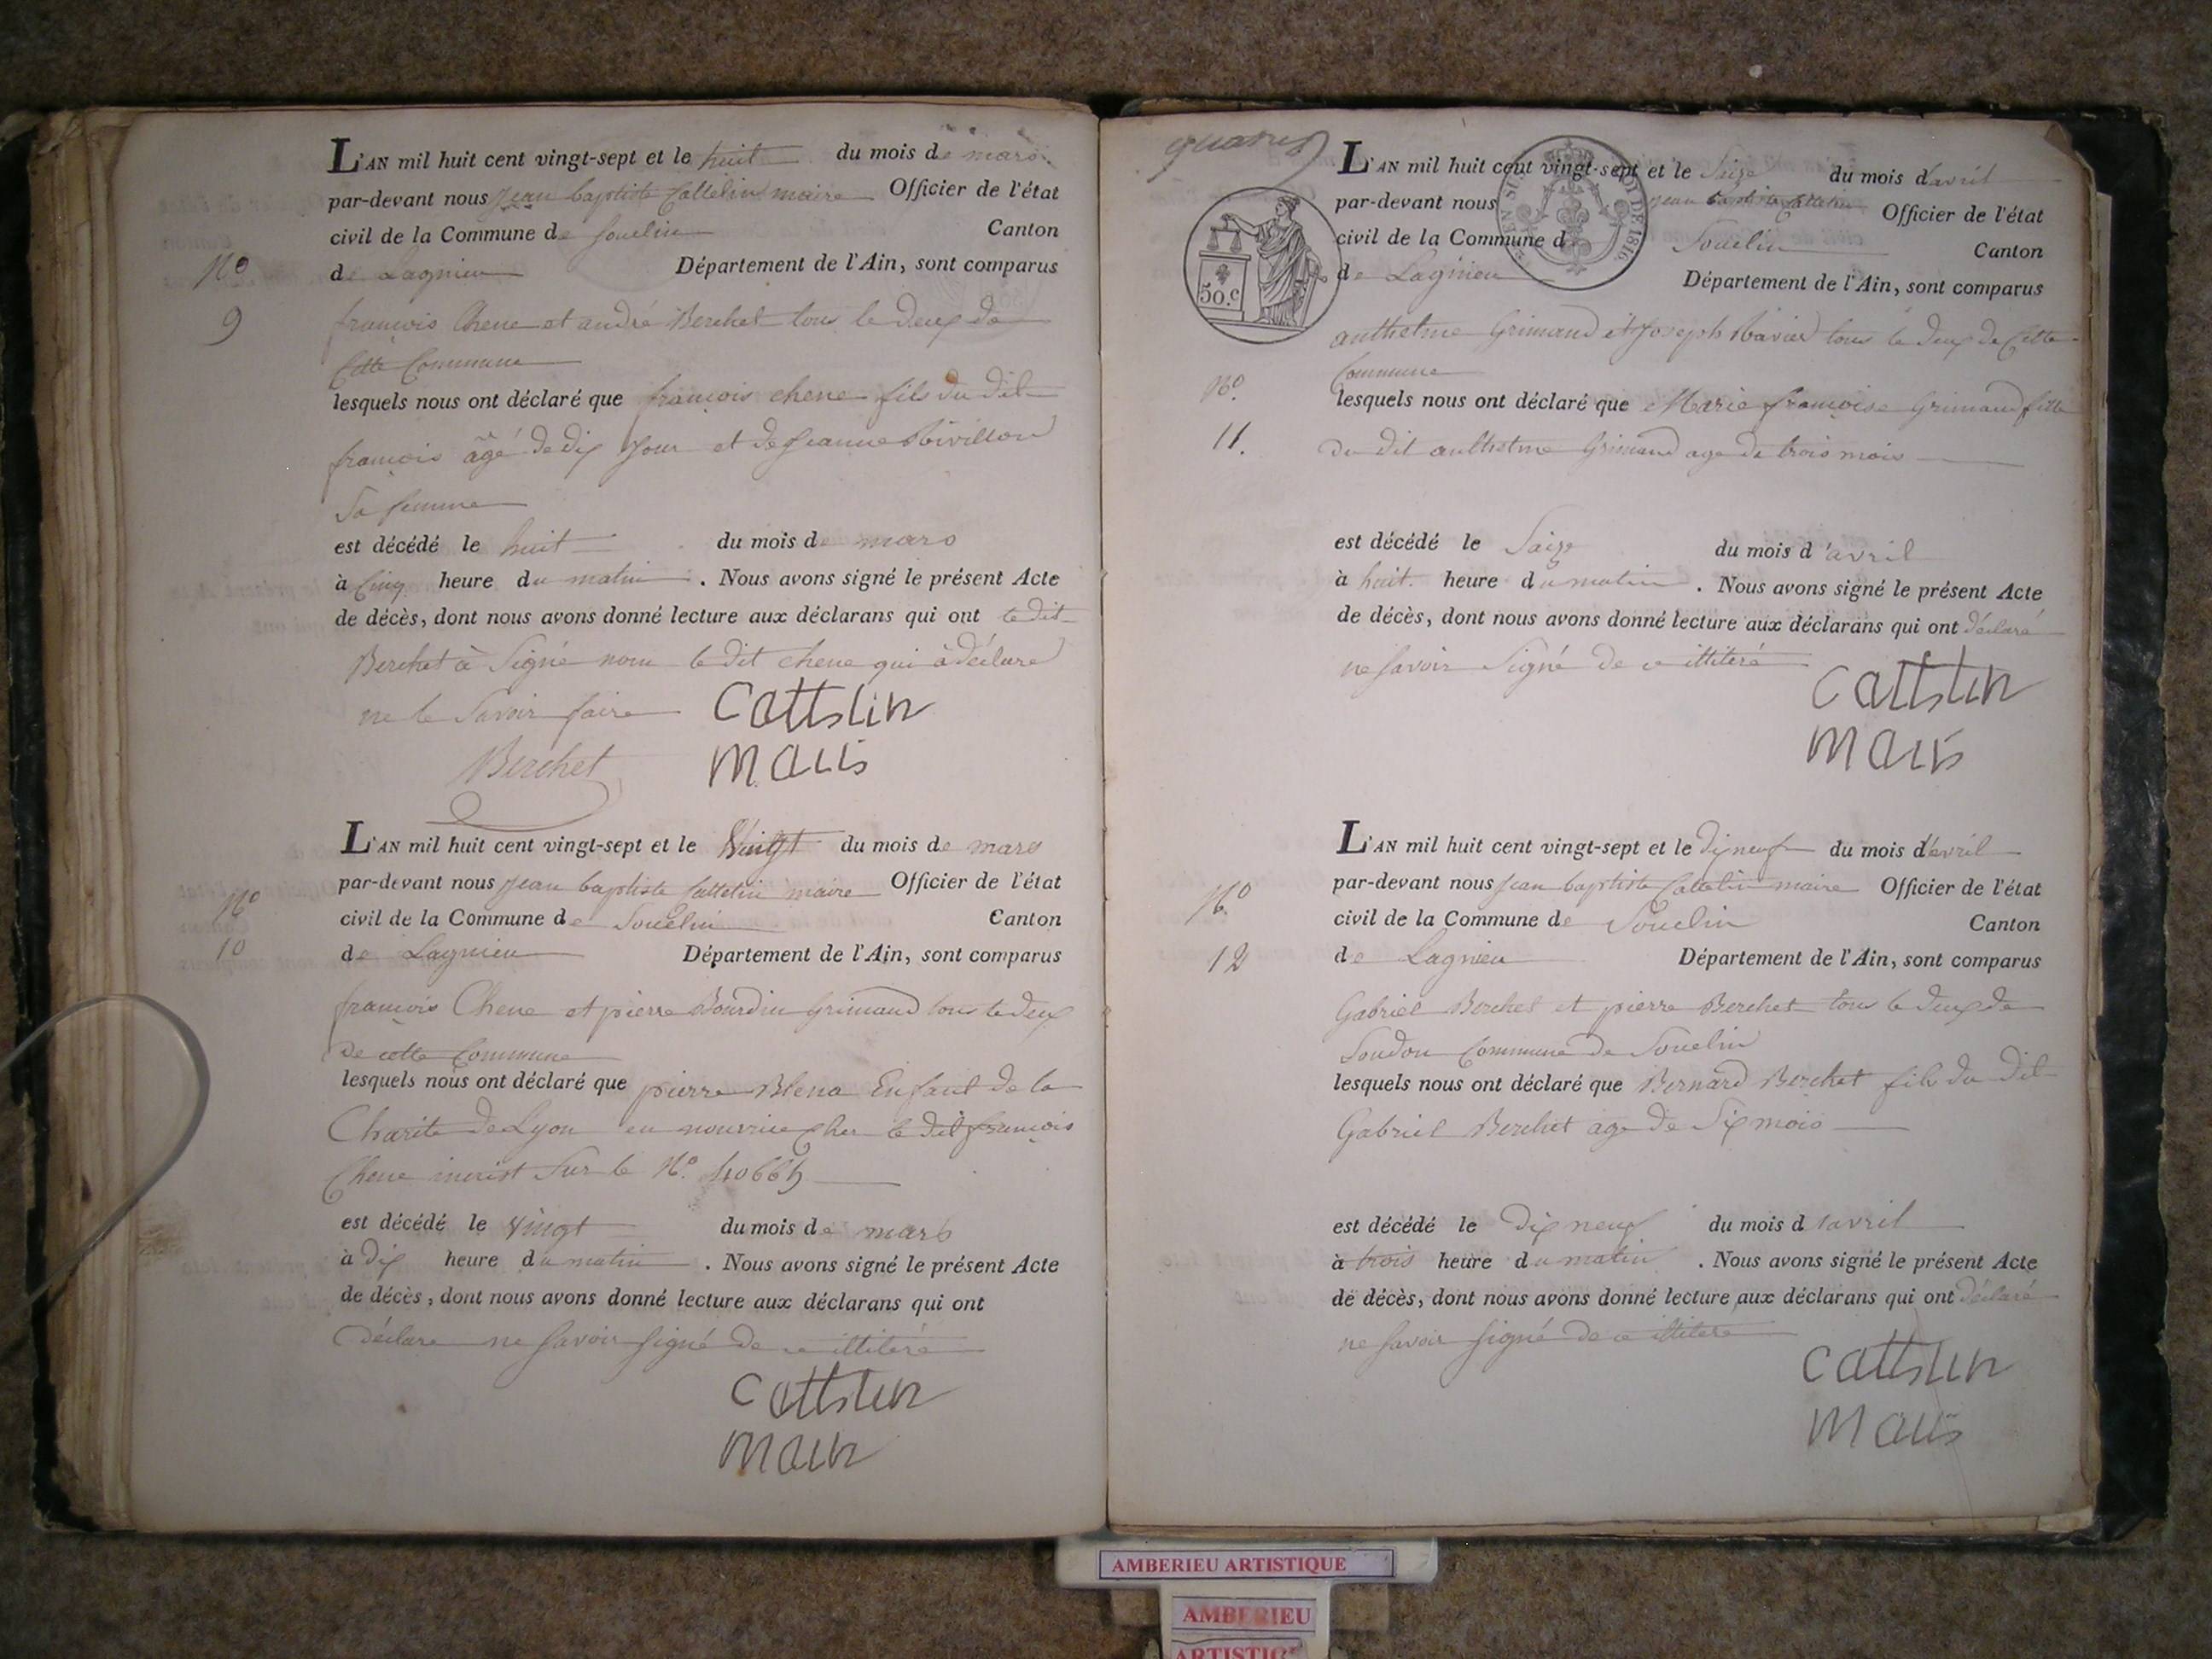 L'AN mil huit cent vingt-sept et le huit du mois de mars
par-devant nous Jean baptiste Cattelin maire Officier de l'état
civil de la Commune de Souclin Canton
de Lagnieu Département de l'Ain, sont comparus
N.º
9
françois Chene et andré Berchet tous le deux de
Cette Commune
lesquels nous ont déclaré que françois chene fils du dit
françois âgé de dix Jour et de jeanne
Sa femme
est décédé le huit du mois de mars
à Cinq heure du matin. Nous avons signé le présent Acte
de décès, dont nous avons donné lecture aux déclarans qui ont le dit
Berchet à Signé non le dit chene qui à déclare
ne le Savoir faire
Cattelin
Berchet
L'AN mil huit cent vingt-sept et le Vingt du mois de mars
par-devant nous Jean baptiste Cattelin maire Officier de l'état
civil de la Commune de Souclin Canton
de Lagnieu Département de l'Ain, sont comparus
Nº
10
françois Chene et pierre Bourdin Grimaud tous le deux
de cette Commune
lesquels nous ont déclaré que pierre Enfant de la
Charité de Lyon en nourrice cher le dit françois
Chene incrist Sur le Nº.
est décédé le Vingt du mois de mars
à dix heure du matin. Nous avons signé le présent Acte
de décès, dont nous avons donné lecture aux déclarans qui ont
déclare ne Savoir signé de ce illitéré
Cattelin
L'AN mil huit cent vingt-sept et le Saize du mois d'avril
par-devant nous Jean baptiste Cattelin Officier de l'état
civil de la Commune d Souclin Canton
de Lagnieu Département de l'Ain, sont comparus
50.c
1816
anthelme Grimaud et Joseph tous le deux de Cette
Commune
Nº.
11.
lesquels nous ont déclaré que Marie françoise Grimaud fille
du dit anthelme Grimaud age de trois mois
est décédé le Saize du mois d'avril
à huit heure du matin. Nous avons signé le présent Acte
de décès, dont nous avons donné lecture aux déclarans qui ont déclaré
ne savoir Signé de ce illiteré
Cattelin
L'AN mil huit cent vingt-sept et le dix neuf du mois d'avril
par-devant nous Jean baptiste Cattelin maire Officier de l'état
civil de la Commune de Souclin Canton
de Lagnieu Département de l'Ain, sont comparus
Nº
12
Gabriel Berchet et pierre Berchet tous le deux de
Soudon Commune de Souclin
lesquels nous ont déclaré que Bernard Berchet fils du dit
Gabriel Berchet age de Six mois
est décédé le dix neuf du mois d'avril
à trois heure du matin. Nous avons signé le présent Acte
de décès, dont nous avons donné lecture aux déclarans qui ont déclaré
ne savoir signé de ce illiteré
Cattelin
AMBERIEU ARTISTIQUE
AMBERIEU
ARTISTIQUE